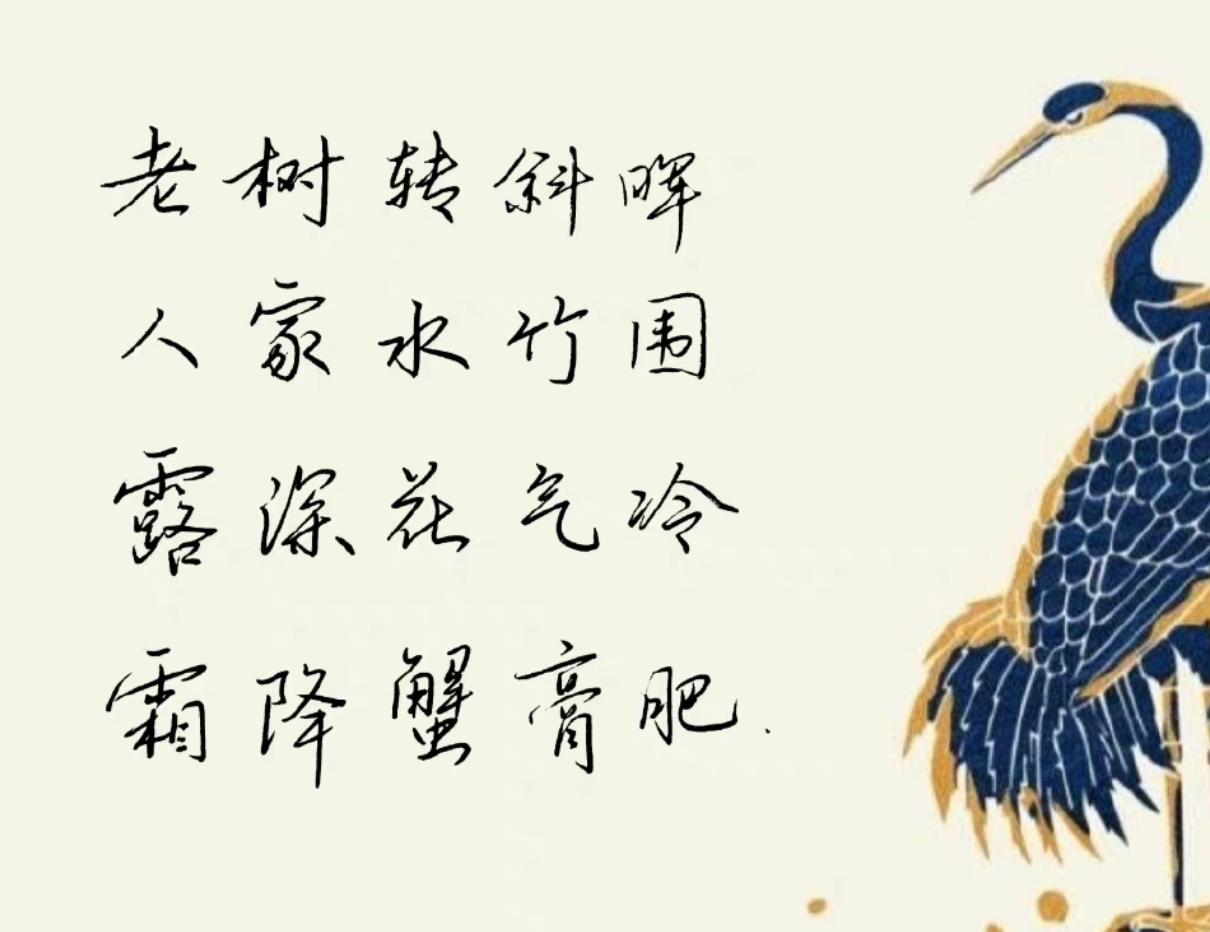 老树转斜晖
人家水竹围
露深花气冷
霜降蟹膏肥.